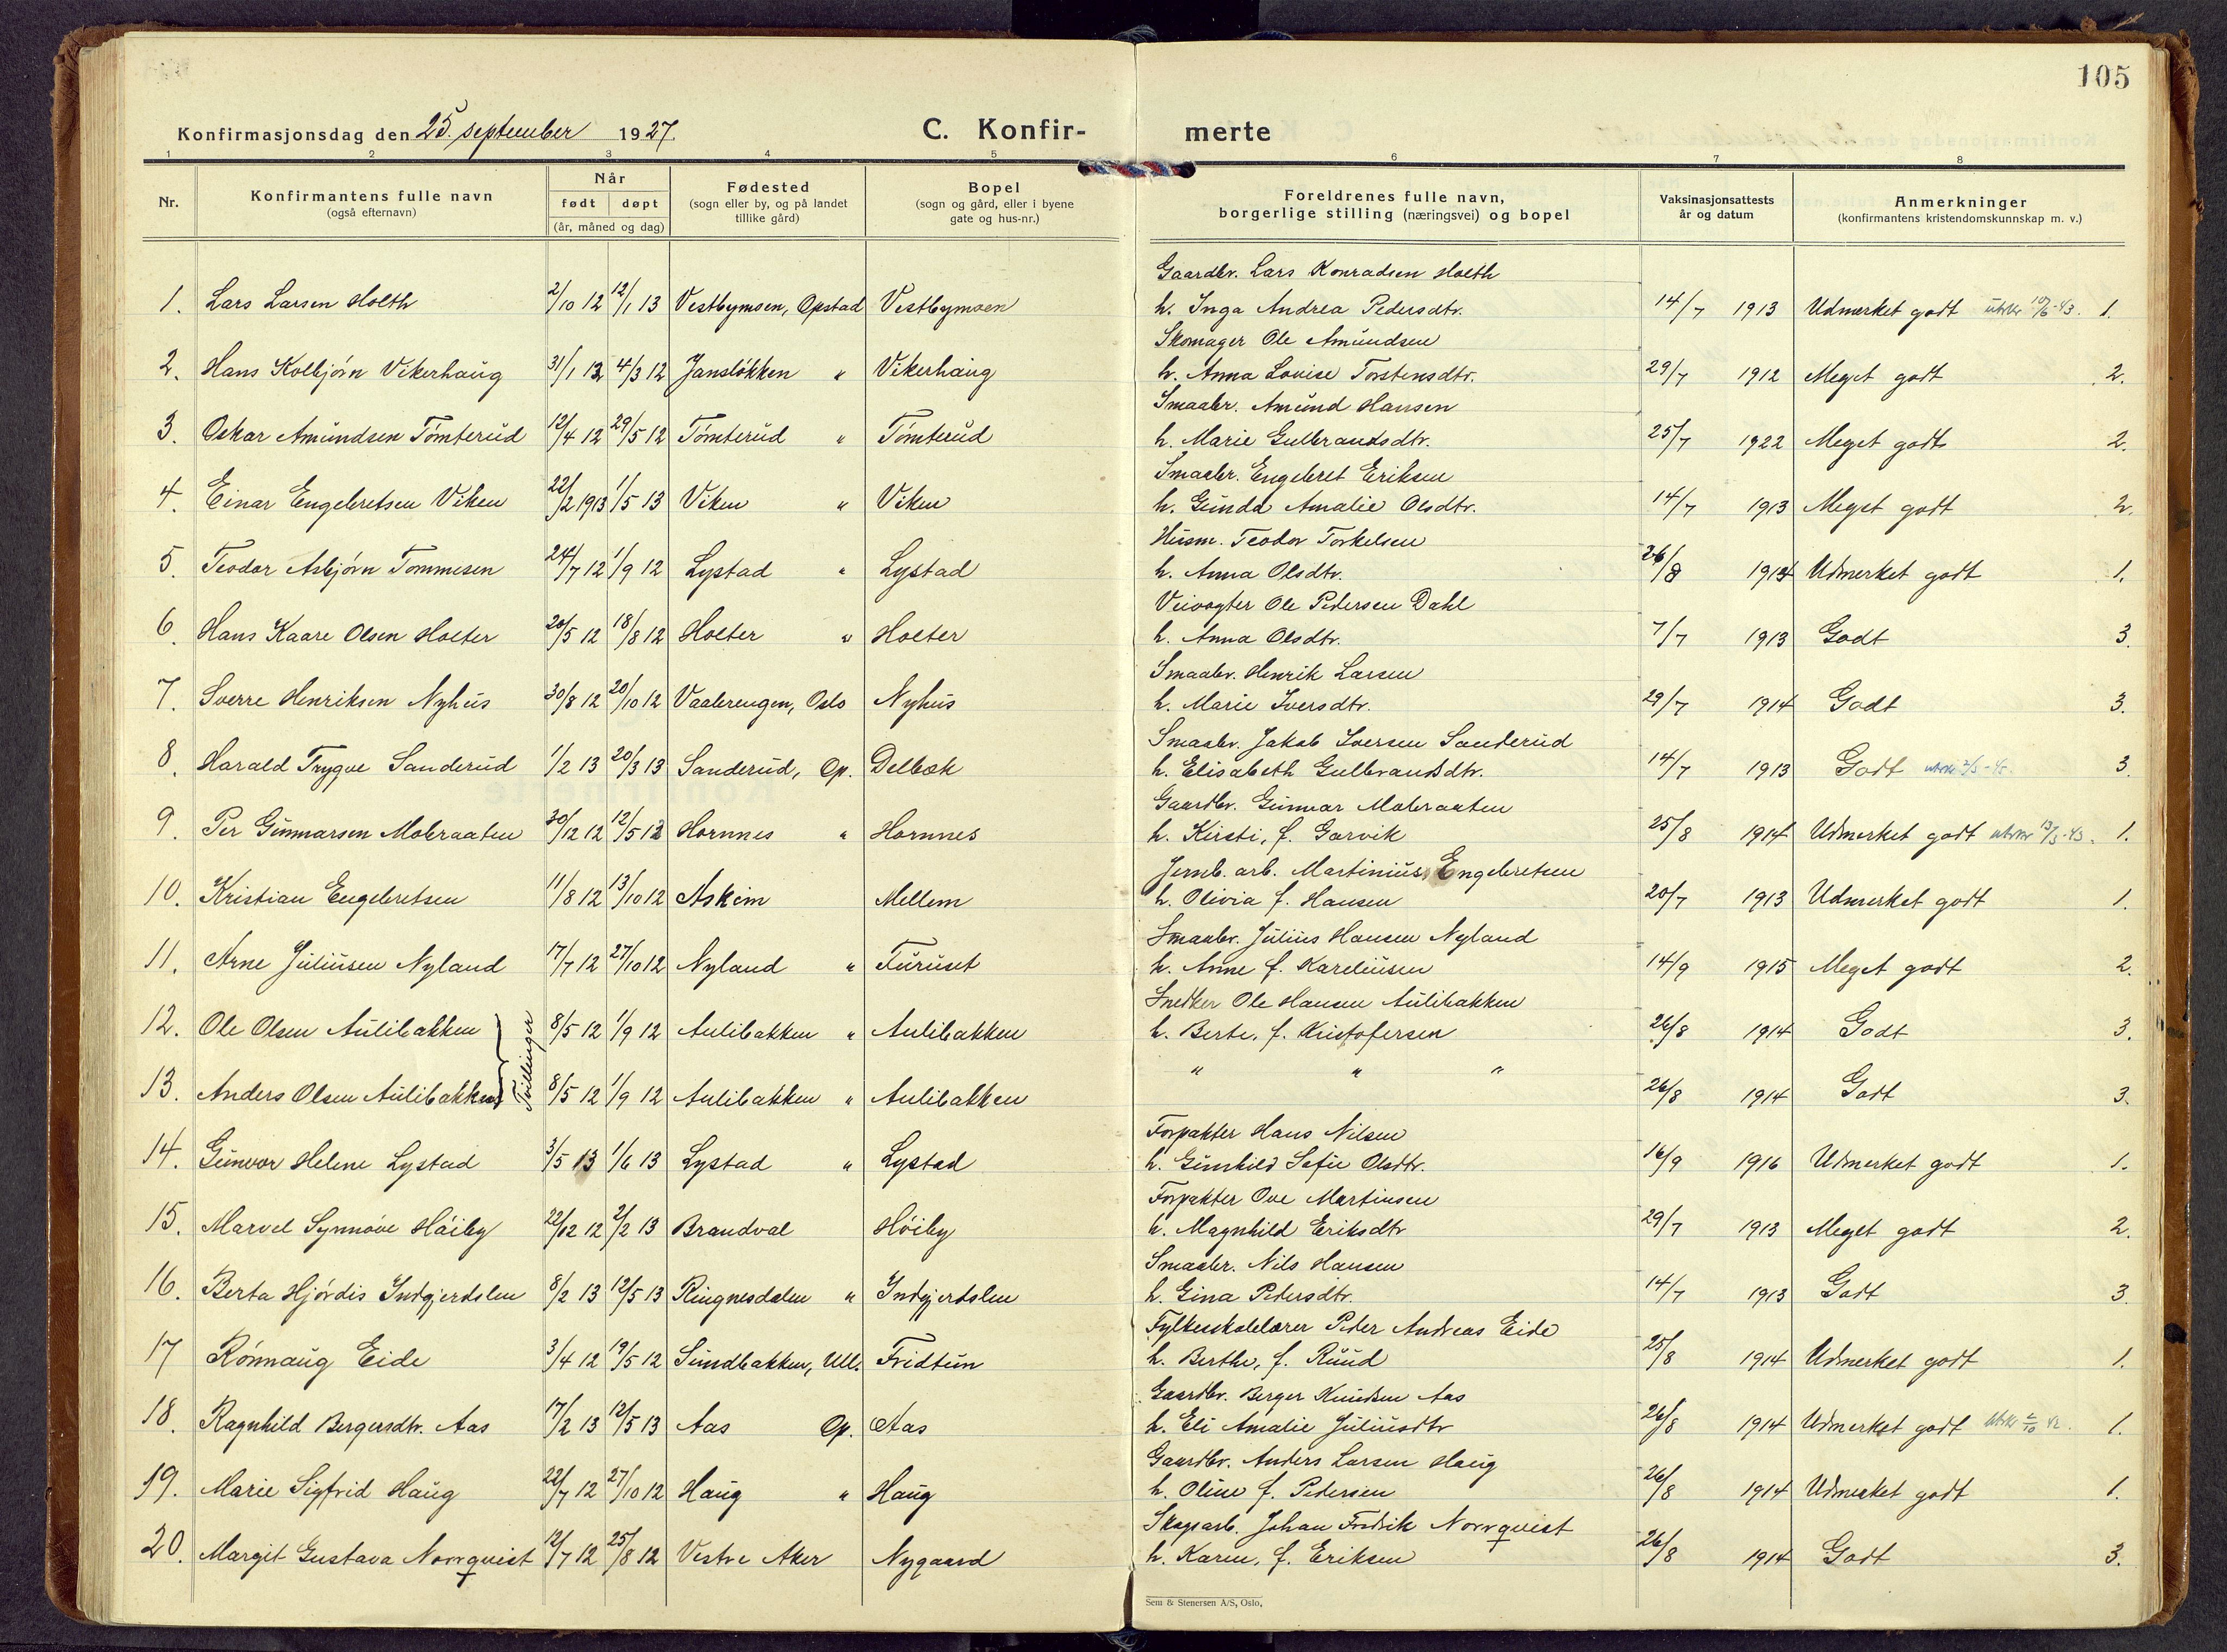 105
Konfirmasjonsdag den 25. september 1927.
C. Konfir-
merte
1 2 3 4 5 6 7 8
Nr.
Konfirmantens fulle navn
(også efternavn)
Når
født døpt
(år, måned og dag)
Fødested
(sogn eller by, og på landet
tillike gård)
Bopel
(sogn og gård, eller i byene
gate og hus-nr.)
Foreldrenes fulle navn,
borgerlige stilling (næringsvei) og bopel
Vaksinasjonsattests
år og datum
Anmerkninger
(konfirmantens kristendomskunnskap m. v.)
Gaardbr. Lars Konradsen Holth
1. Lars Larsen Holth 2/10 12 12/1 13 Vestbymoen, Opstad Vestbymoen h. Inga Andrea Pedersdtr. 14/7 1913 Udmerket godt 1.
Skomager Ole Amundsen
2. Hans Kolbjørn Vikerhaug 31/1 12 4/3 12 Jansløkken " Vikerhaug h. Anna Lovise Torstensdtr. 29/7 1912 Meget godt 2.
Smaabr. Amund Hansen
3. Oskar Amundsen Tømterud 12/4 12 29/5 12 Tømterud " Tømterud h. Marie Gulbrandsdtr. 25/7 1922 Meget godt 2.
Smaabr. Engebret Eriksen
4. Einar Engebretsen Viken 22/2 1913 1/5 13 Viken " Viken h. Gunda Amalie Olsdtr. 14/7 1913 Meget godt 2.
Husm. Teodor Torkelsen
5. Teodor Asbjørn Tommesen 24/7 12 1/9 12 Lystad " Lystad h. Anna Olsdtr. 26/8 1914 Udmerket godt 1.
Veivogter Ole Pedersen Dahl
6. Hans Kaare Olsen Holter 20/5 12 18/8 12 Holter " Holter h. Anna Olsdtr. 7/7 1913 Godt 3.
Smaabr. Henrik Larsen
7. Sverre Henriksen Nyhus 30/8 12 20/10 12 Vaalerengen, Oslo Nyhus h. Marie Iversdtr. 29/7 1914 Godt 3.
Smaabr. Jakob Iversen Sanderud
8. Harald Trygve Sanderud 1/2 13 20/3 13 Sanderud, Op. Delbæk h. Elisabeth Gulbrandsdtr. 14/7 1913 Godt 3.
Gaardbr. Gunnar Mobraaten
9. Per Gunnarsen Mobraaten 30/12 12 12/5 13 Hornnes " Hornnes h. Kirsti, f. Garvik 25/8 1914 Udmerket godt 1.
Jernb. arb. Martinius Engebretsen
10. Kristian Engebretsen 11/8 12 13/10 12 Askim Mellem h. Olivia f. Hansen 20/7 1913 Udmerket godt 1.
Smaabr. Julius Hansen Nyland
11. Arne Juliusen Nyland 17/7 12 27/10 12 Nyland " Furuset h. Anne f. Kareliusen 14/9 1915 Meget godt 2.
Snedker Ole Hansen Aulibakken
12. Ole Olsen Aulibakken Tvillinger 8/5 12 1/9 12 Aulibakken " Aulibakken h. Berte, f. Kristofersen 26/8 1914 Godt 3.
" " "
13. Anders Olsen Aulibakken 8/5 12 1/9 12 Aulibakken " Aulibakken 26/8 1914 Godt 3.
Forpakter Hans Nilsen
14. Gunvor Helene Lystad 3/5 13 1/6 13 Lystad " Lystad h. Gunhild Sofie Olsdtr. 16/9 1916 Udmerket godt 1.
Forpakter Ove Martinsen
15. Marvel Synnøve Høiby 22/12 12 2/2 13 Brandval Høiby h. Magnhild Eriksdtr 29/7 1913 Meget godt 2.
Smaabr. Nils Hansen
16. Berta Hjørdis Indgjerdslen 8/2 13 12/5 13 Ringnesdalen " Indgjerdslen h. Gina Pedersdtr. 14/7 1913 Godt 3.
Fylkesskolelærer Peder Andreas Eide
17 Rønnaug Eide 3/4 12 19/5 12 Sundbakken, Ull. Fridtun h. Berthe, f. Ruud 25/8 1914 Udmerket godt 1.
Gaardbr. Berger Knudsen Aas
18. Ragnhild Bergersdtr. Aas 17/2 13 12/5 13 Aas Op. Aas h. Eli Amalie Juliusdtr 26/8 1914 Udmerket godt 1.
Gaardbr. Anders Larsen Haug
19. Marie Sigfrid Haug 22/7 12 27/10 12 Haug " Haug h. Oline f. Pedersen 26/8 1914 Udmerket godt 1.
Skogsarb. Johan Fredrik Norrquist
20. Margit Gustava Norrquist 12/7 12 25/8 12 Vestre Aker Nygaard h. Karen, f. Eriksen 26/8 1914 Godt 3.
Sem & Stenersen A/S, Oslo.